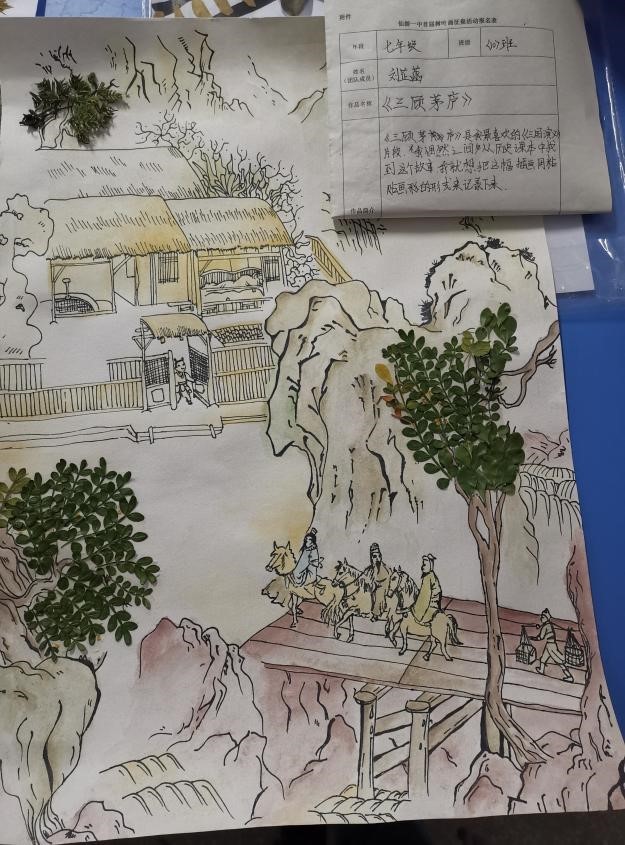 附件
仙游一中首届树叶画征集活动报名表
年段 七年级 班级 (1)班
姓名
(团队成员) 刘芷菡
作品名称 《三顾茅庐》
《三顾茅庐》是我最喜欢的《三国演义》
片段
从历史课本中我
到这个故事,我就想把这幅插画用粘
贴画的形式来记录下来.
作品简介